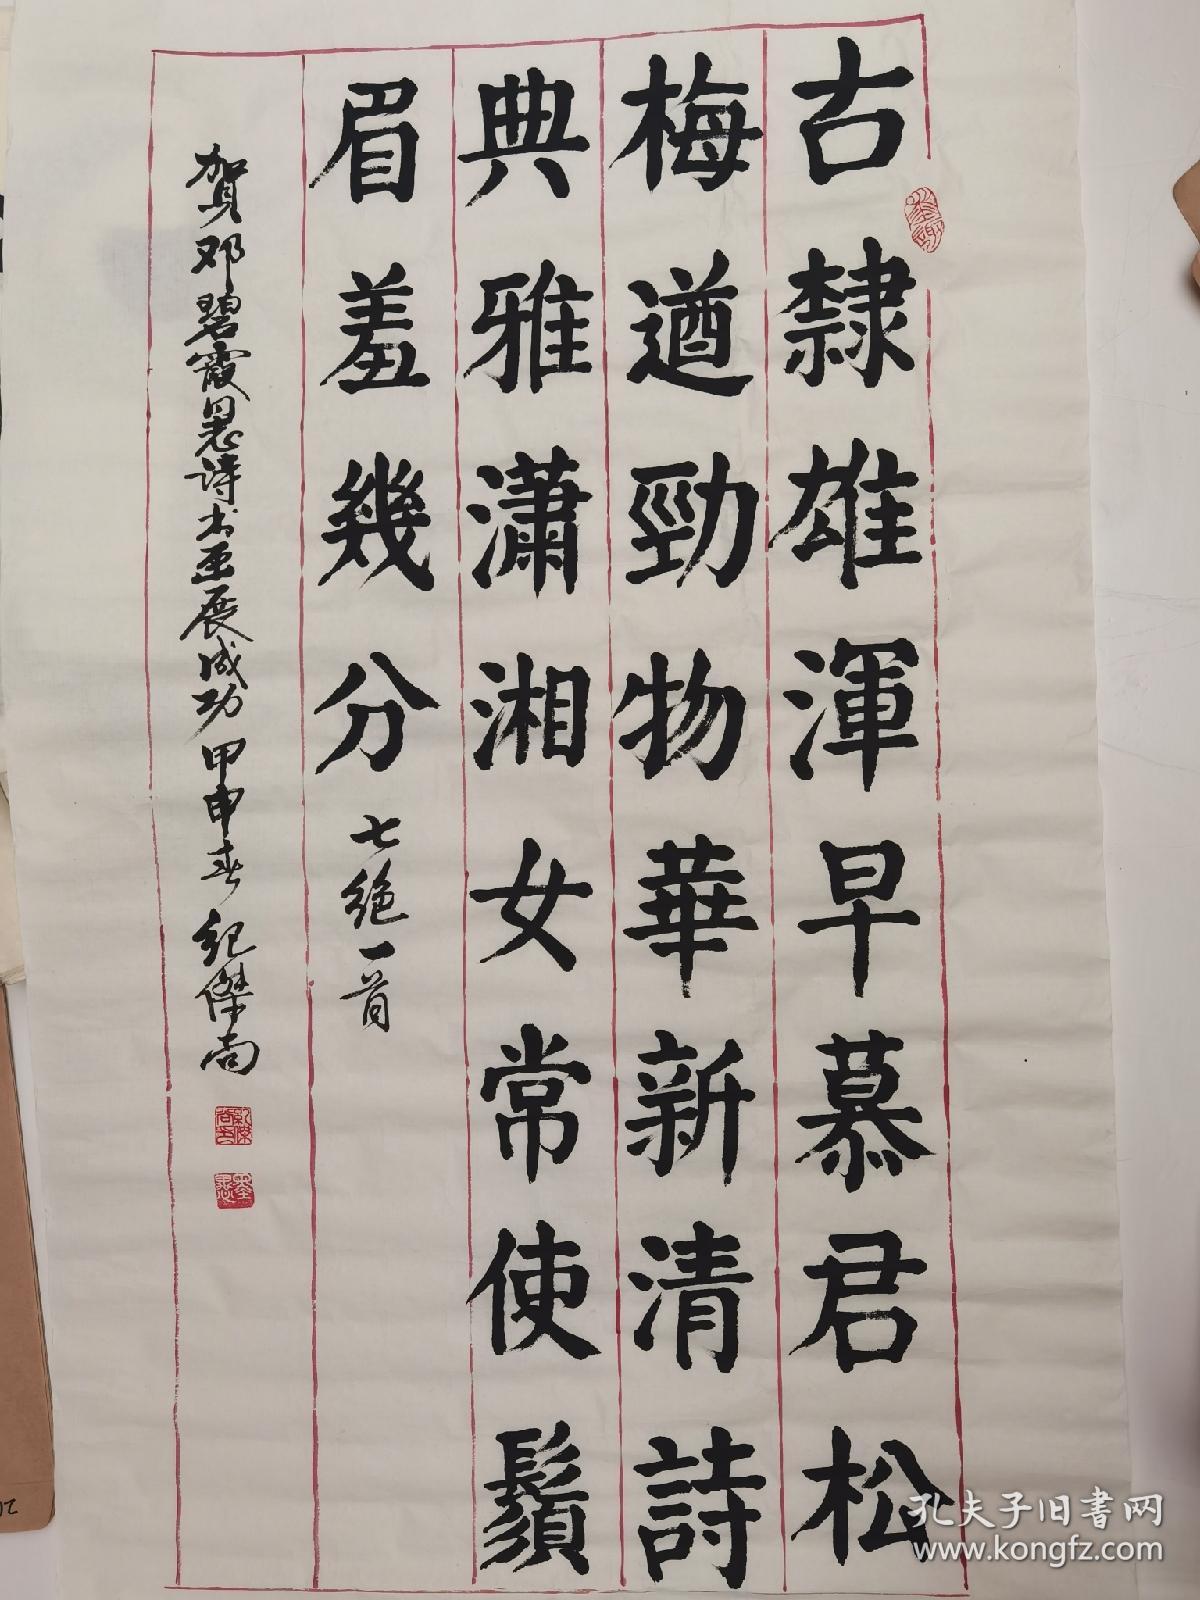 古隸雄渾早慕君松
梅遒勁物華新清詩
典雅瀟湘女常使鬚
眉羞幾分
七绝一首
賀邓碧霞同志诗书画展成功 甲申春 纪傑尚
孔夫子旧書网
www.kongfz.com